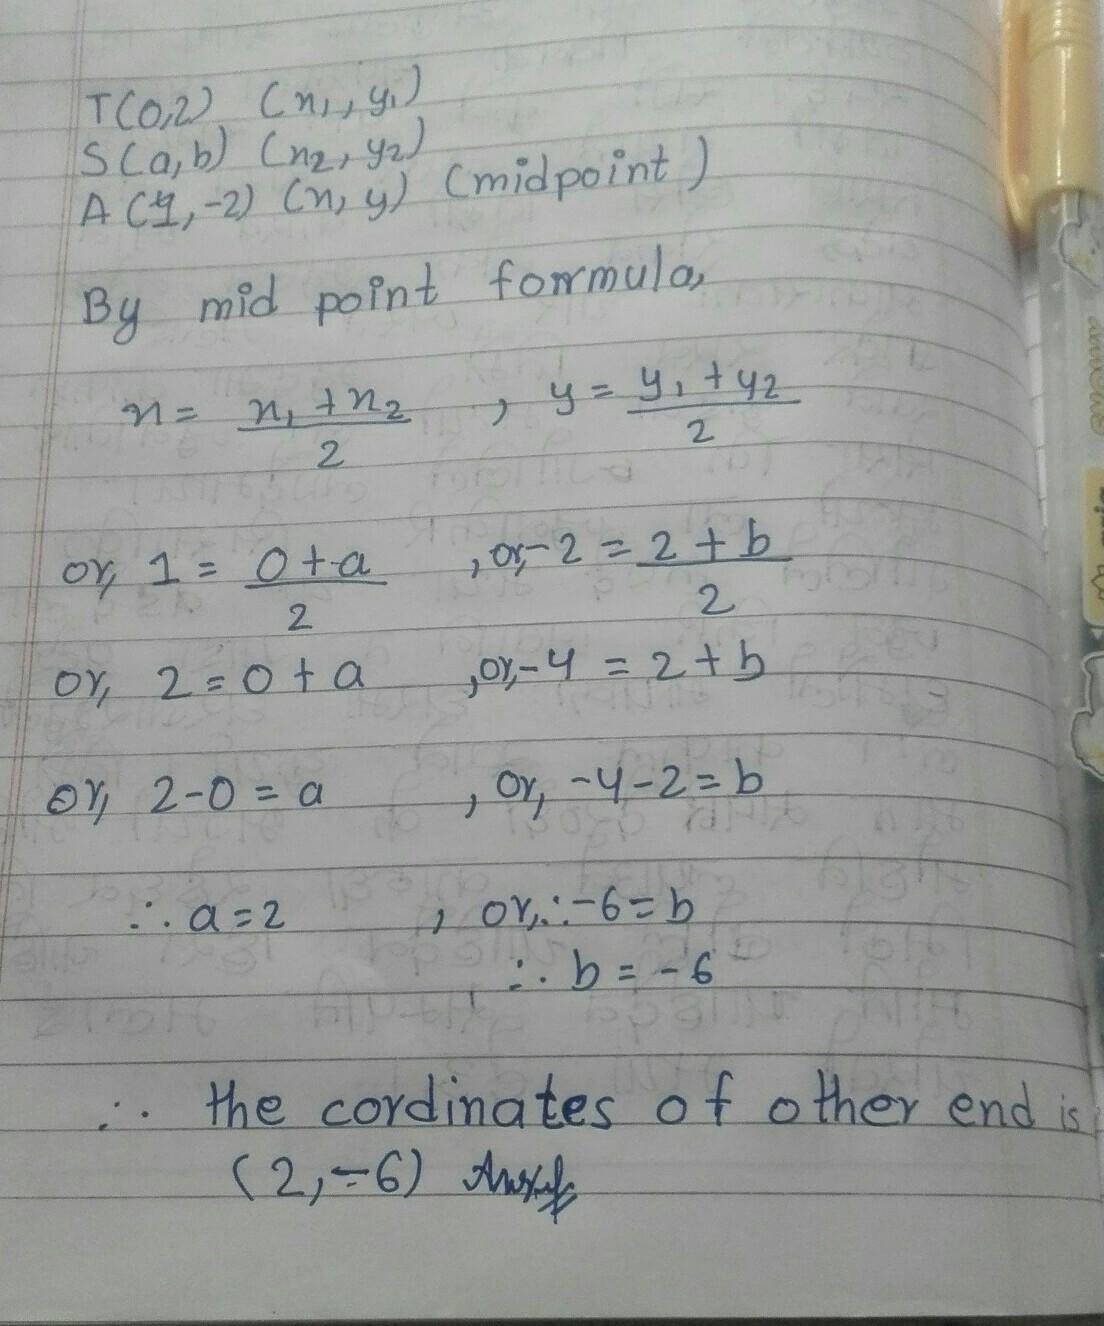 T(0,2) (x₁, y₁)
S(a,b) (x₂, y₂)
A(1,-2) (x, y) (midpoint)
By mid point formula,
x = x₁ + x₂ / 2 , y = y₁ + y₂ / 2
or, 1 = 0 + a / 2 , or, -2 = 2 + b / 2
or, 2 = 0 + a , or, -4 = 2 + b
or, 2-0 = a , or, -4-2 = b
∴ a = 2 , or, ∴ -6 = b
∴ b = -6
∴ the cordinates of other end is
(2, -6) Ans